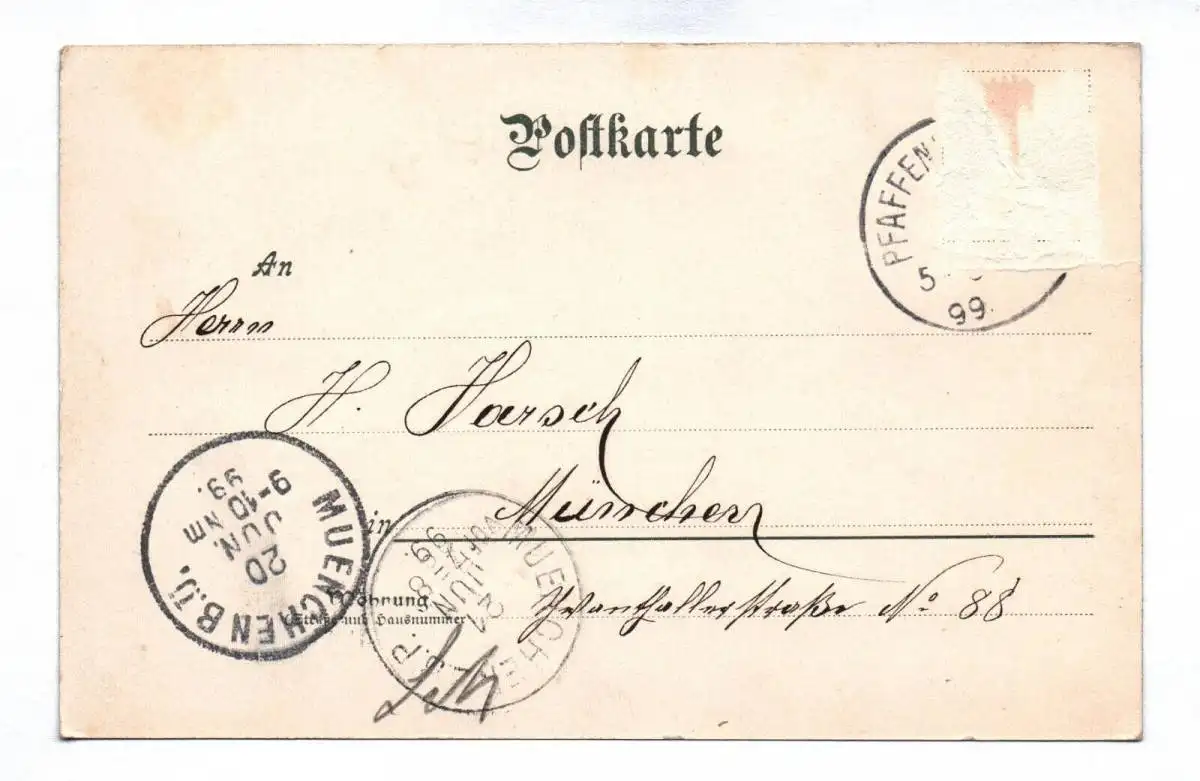 Postkarte
PFAFFEN
5
99.
An
Herrn
H. Harsch
in München
Wohnung
(Straße und Hausnummer)
Schwanthallerstraße No 88
MUENCHEN B.Ü.
20
JUN.
9-10 NM
99.
MUENCHEN
21
JUN
VORM
99.